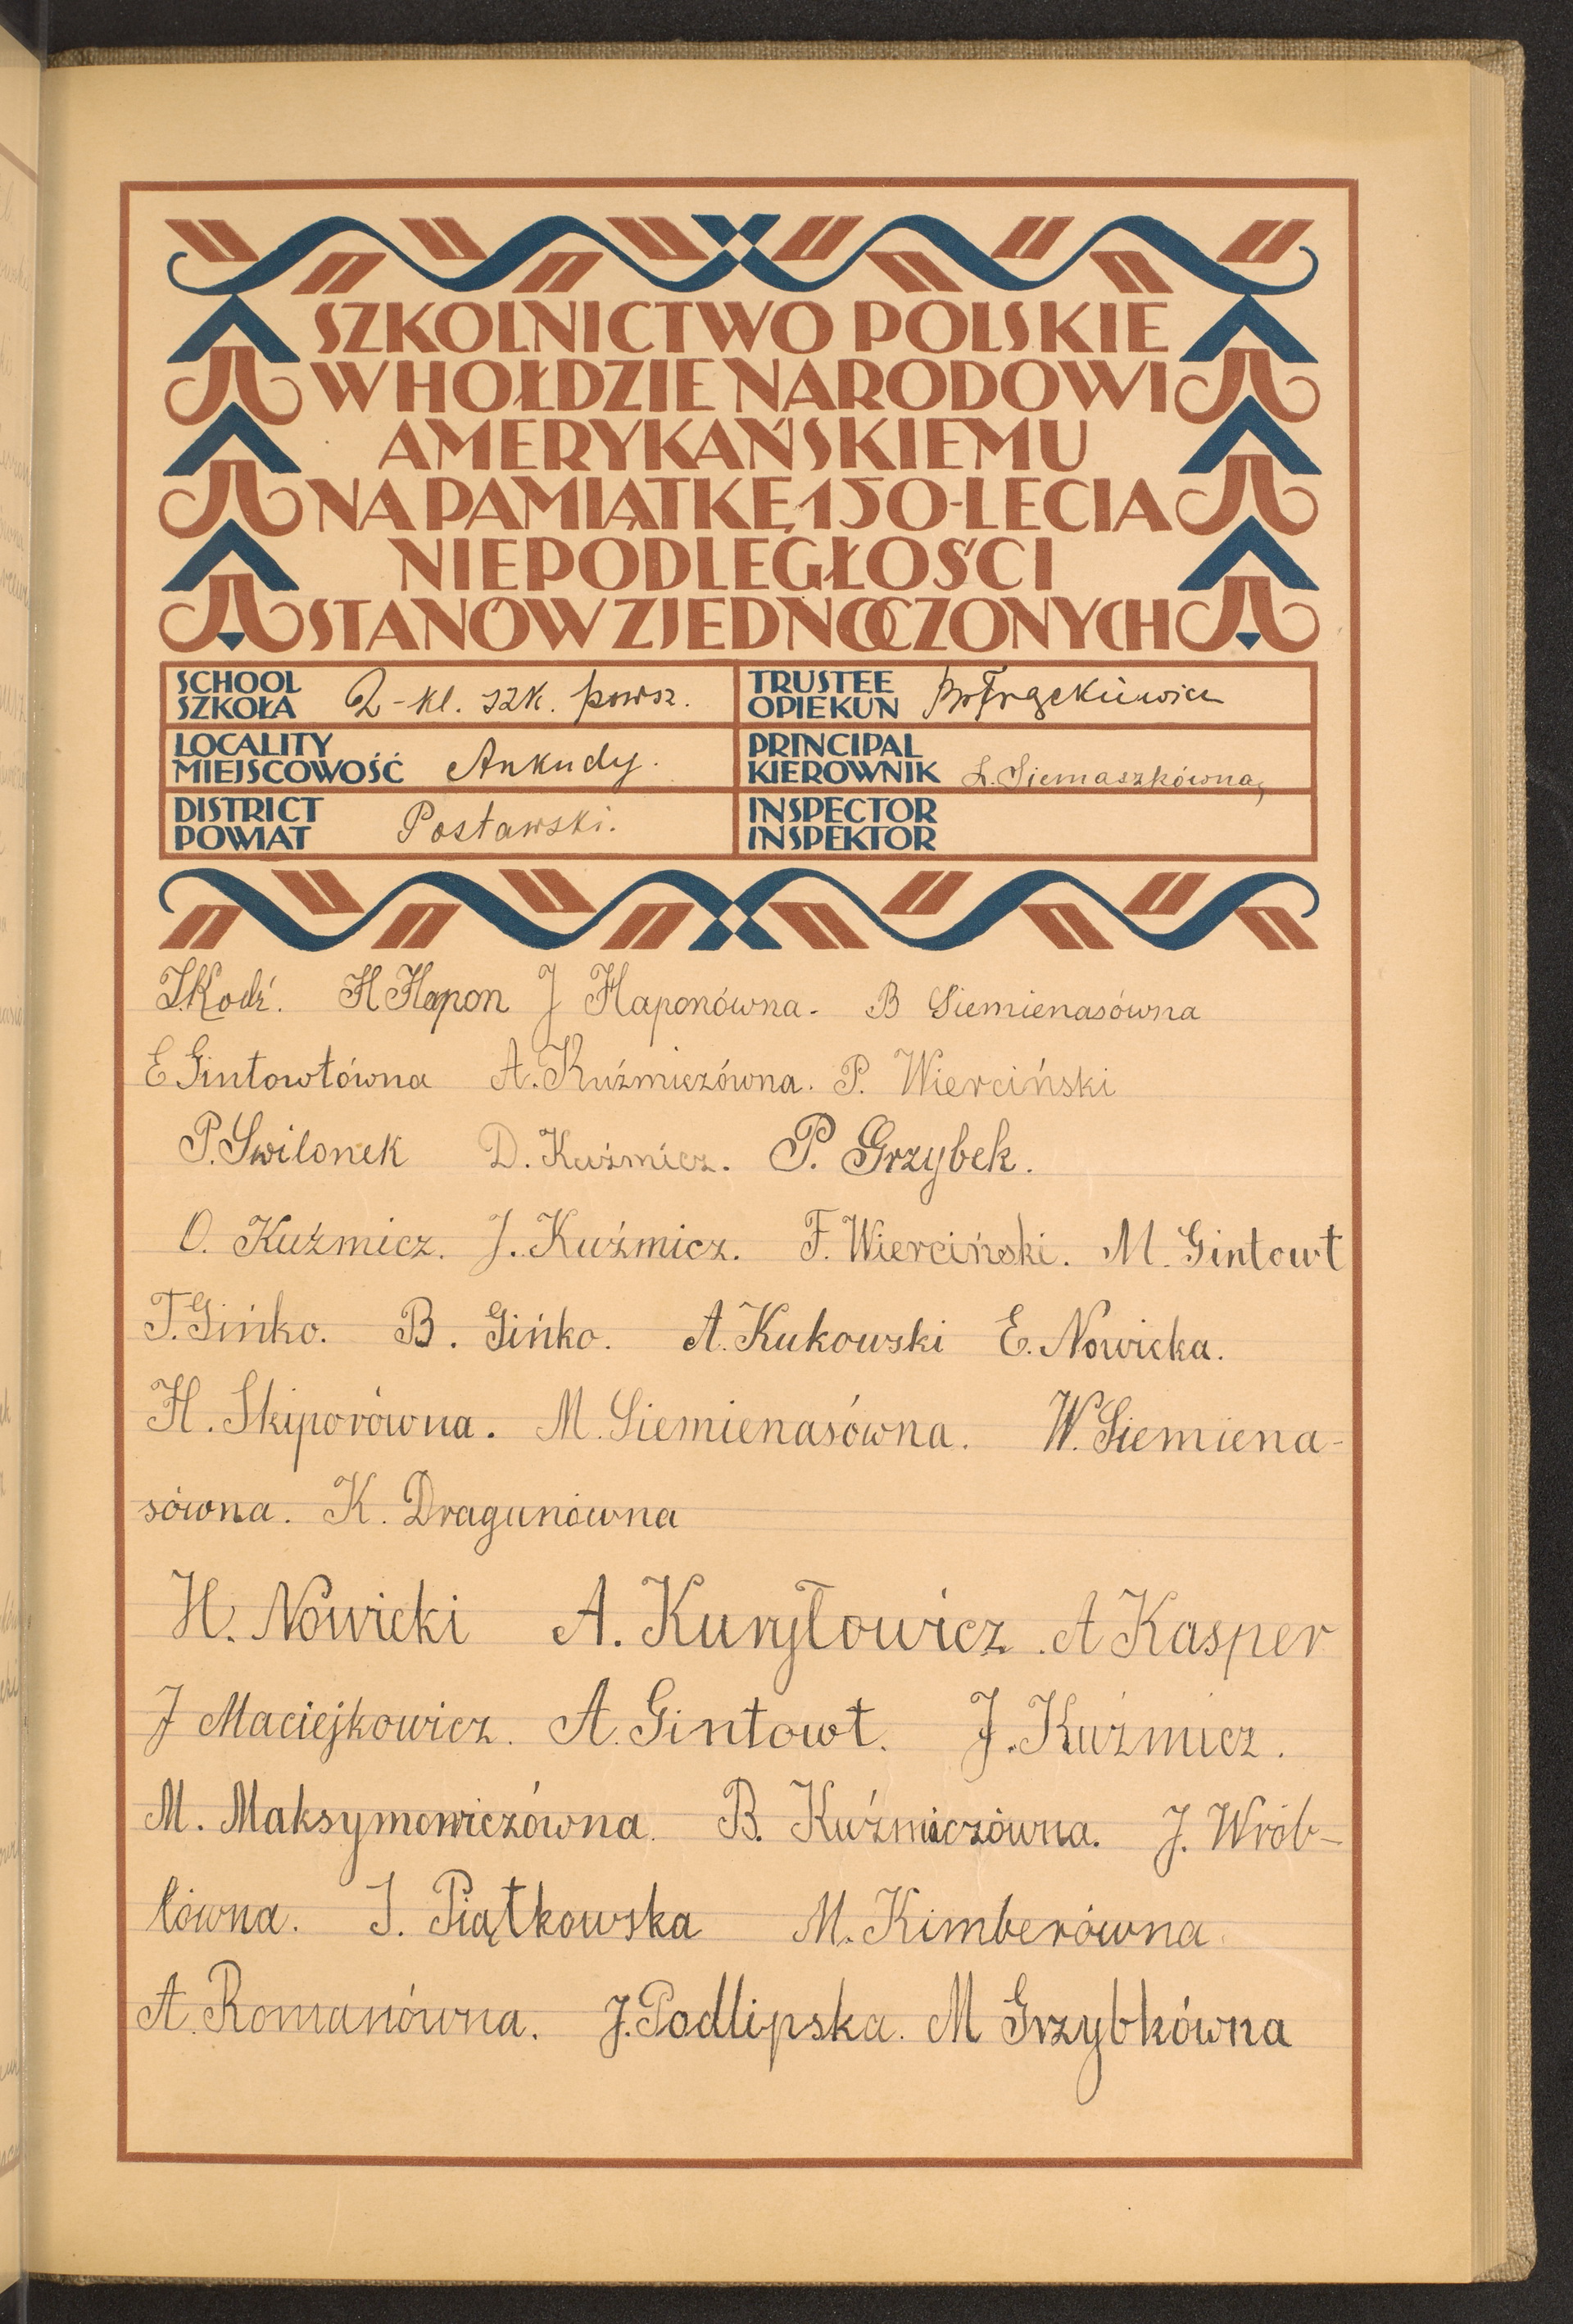 SZKOLNICTWO POLSKIE
W HOŁDZIE NARODOWI
AMERYKAŃSKIEMU
NA PAMIĄTKĘ 150-LECIA
NIEPODLEGŁOŚCI
STANÓW ZJEDNOCZONYCH
SCHOOL
SZKOŁA 2-kl. szk. powsz.
TRUSTEE
OPIEKUN
LOCALITY
MIEJSCOWOŚĆ Ankudy.
PRINCIPAL
KIEROWNIK L. Siemaszkówna,
DISTRICT
POWIAT Postawski.
INSPECTOR
INSPEKTOR
Kodź. H Hapon J Haponówna. B Siemienasówna
E Gintowtówna A. Kuźmiczówna. P. Wierciński
P. Swilonek D. Kuźmicz. P. Grzybek.
O. Kuźmicz. J. Kuźmicz. F. Wierciński. M. Gintowt
T. Gińko. B. Gińko. A. Kukowski E. Nowicka.
H. Skiporówna. M. Siemienasówna. W. Siemiena-
sówna. K. Dragunówna
H. Nowicki A. Kuryłowicz. A Kasper
J Maciejkowicz. A. Gintowt. J. Kuźmicz.
M. Maksymowiczówna. B. Kuźmiczówna. J. Wrób-
lówna. J. Piątkowska M. Kimberówna.
A. Romanówna. J. Podlipska. M Grzybkówna